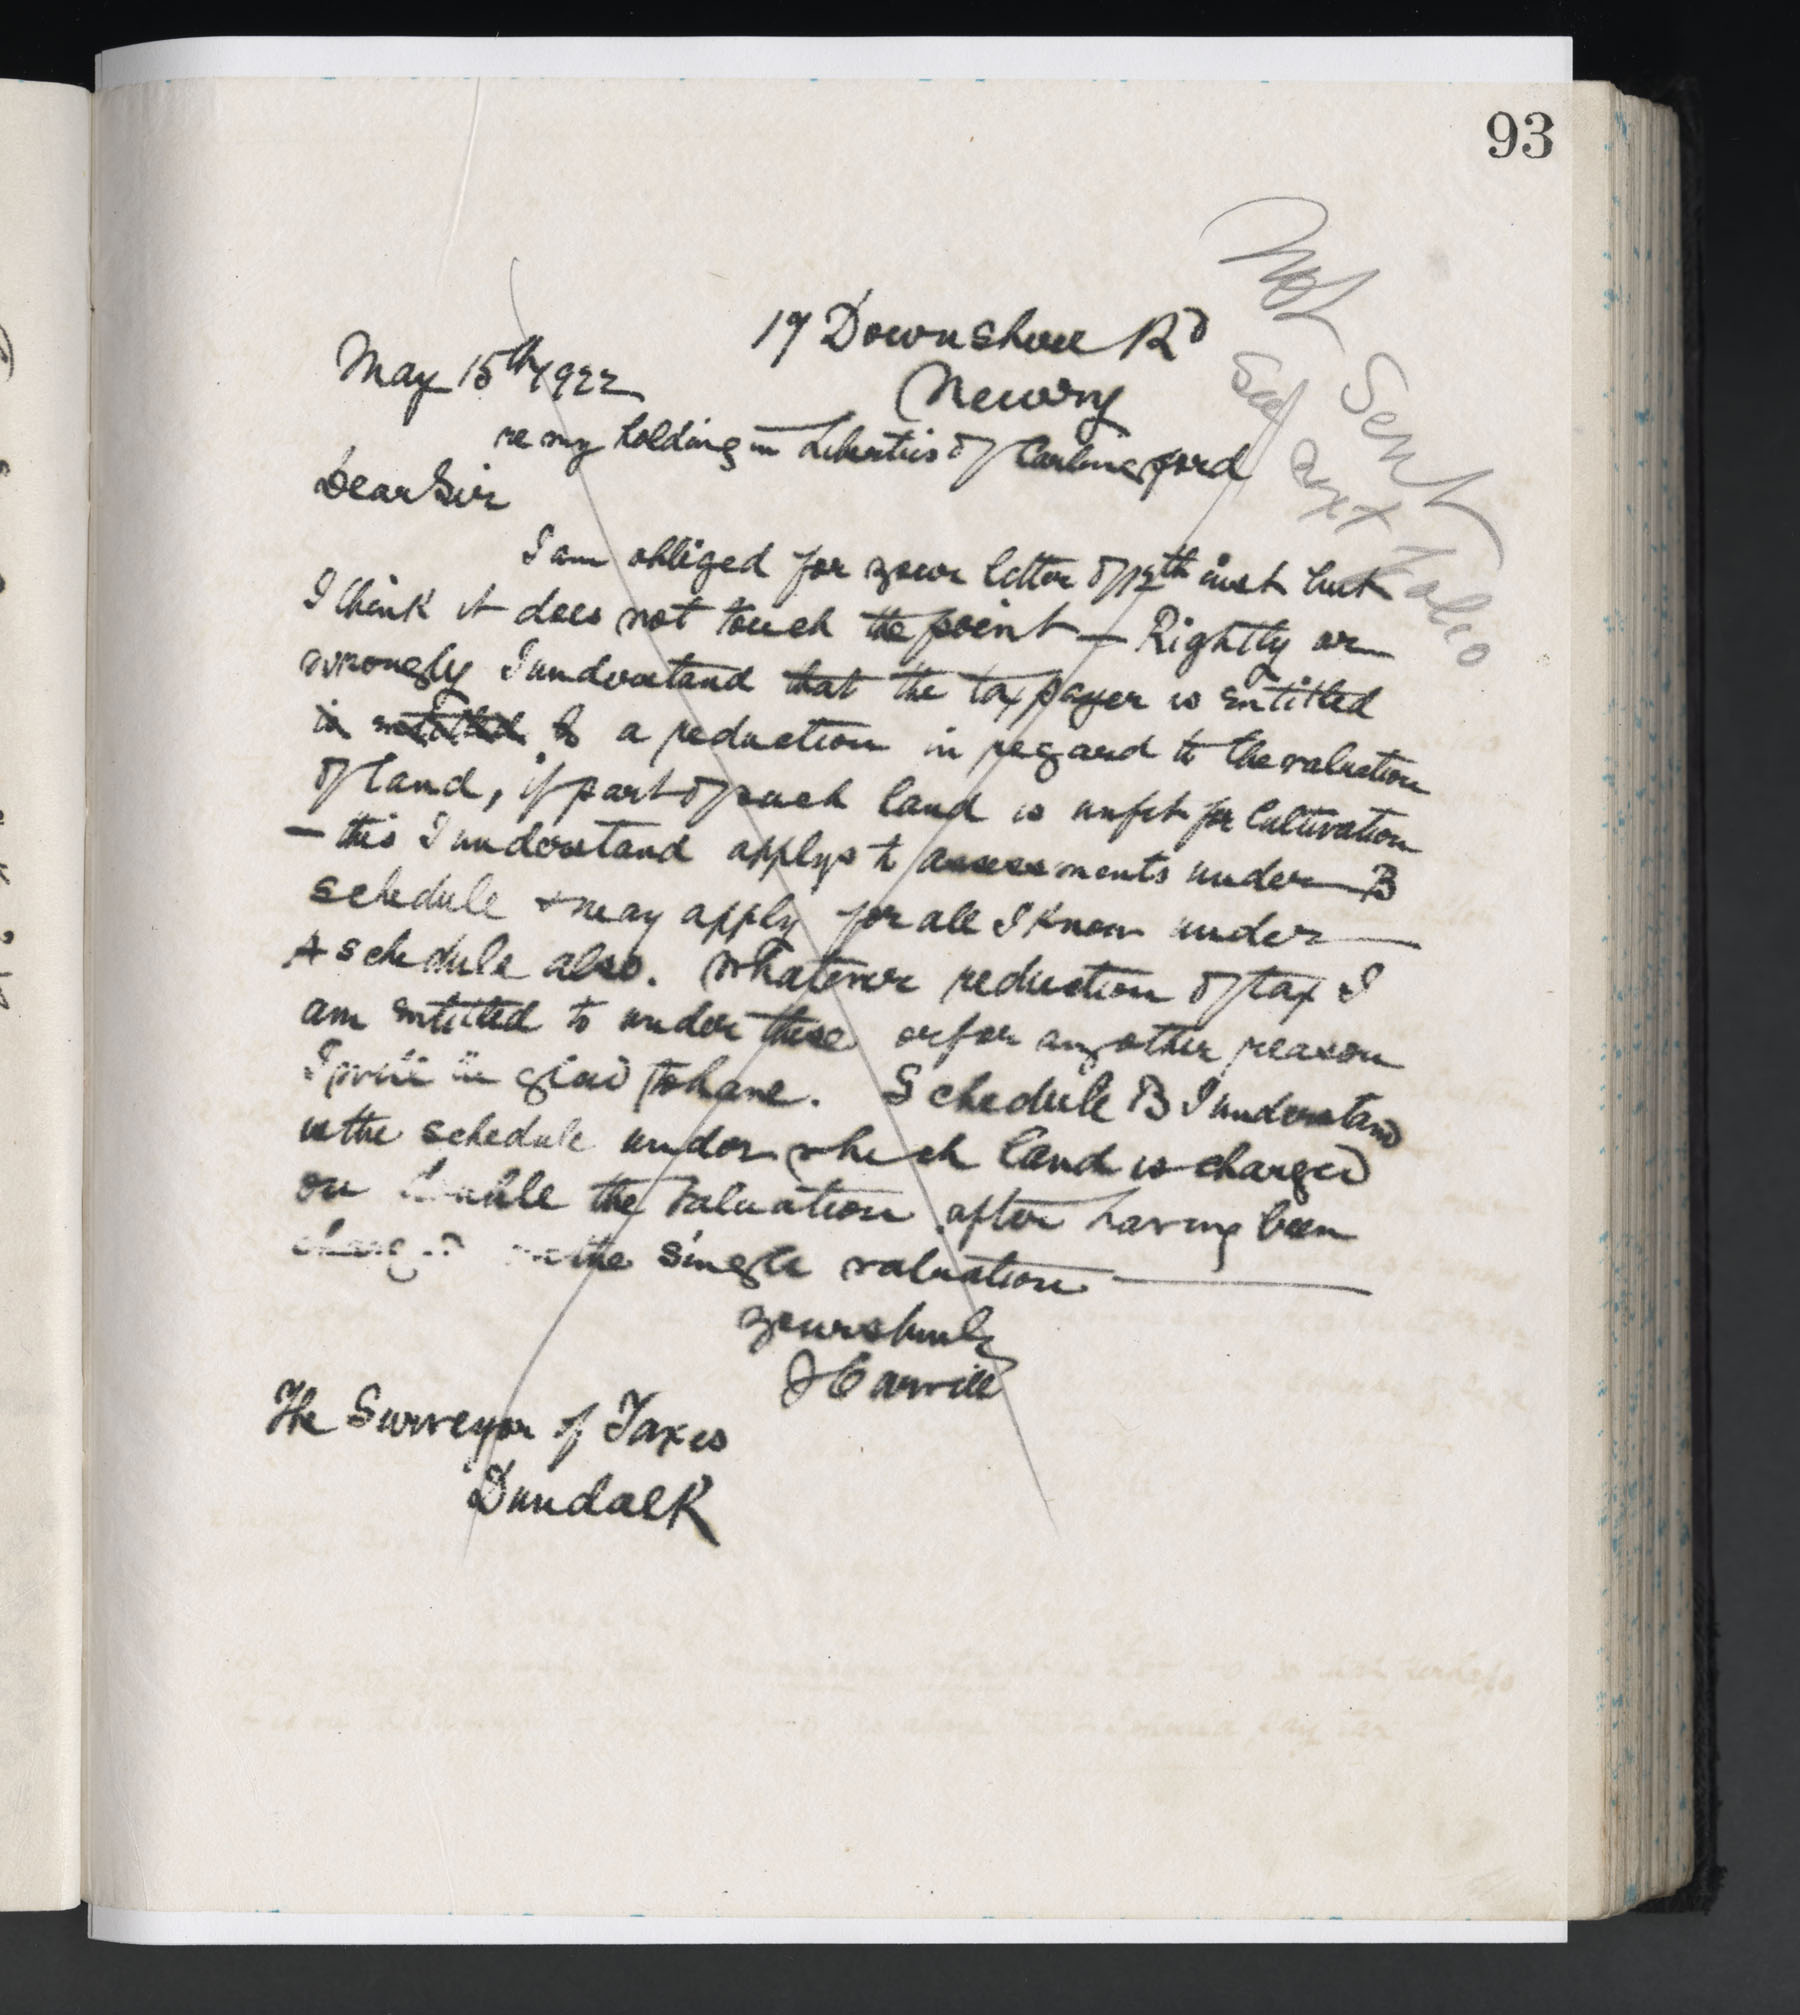 93
Not Sent
See next Folio
17 Downshire Rd
May 15th 1922
Newry
re my holding in Liberties of Carlingford
Dear Sir
I am obliged for your letter of 12th inst but
I think it does not touch the point — Rightly or
wrongly I understand that the tax payer is entitled
is entitled to a reduction in regard to the valuation
of land, if part of such land is unfit for Cultivation
— this I understand applys to assessments under B
schedule & may apply for all I know under
A schedule also. Whatever reduction of tax I
am entitled to under these or for any other reason
I will be glad to have. Schedule B I understand
is the schedule under which land is charged
on double the valuation after having been
charged on the single valuation
yours truly
J Carvill
The Surveyor of Taxes
Dundalk